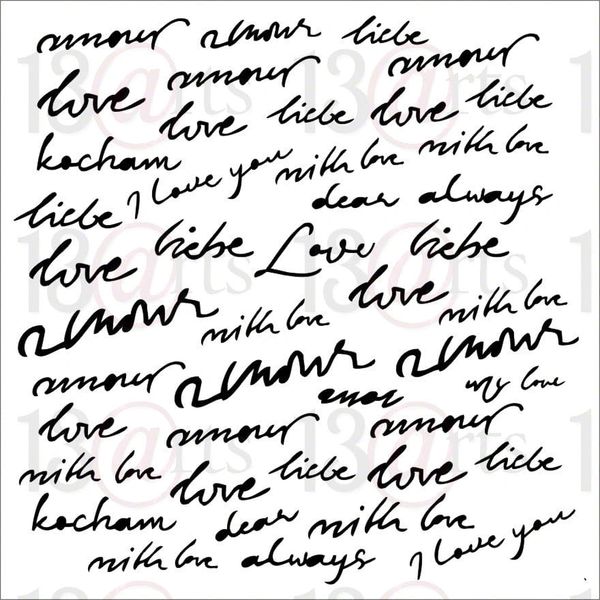 amour amour liebe
love amour amour
love liebe love liebe
kocham I love you with love with love
liebe dear always
love liebe Love liebe
amour with love love with love
amour amour amour
amour my love
love amour amour
with love love liebe love liebe
kocham dear with love
with love always I love you
13@rts